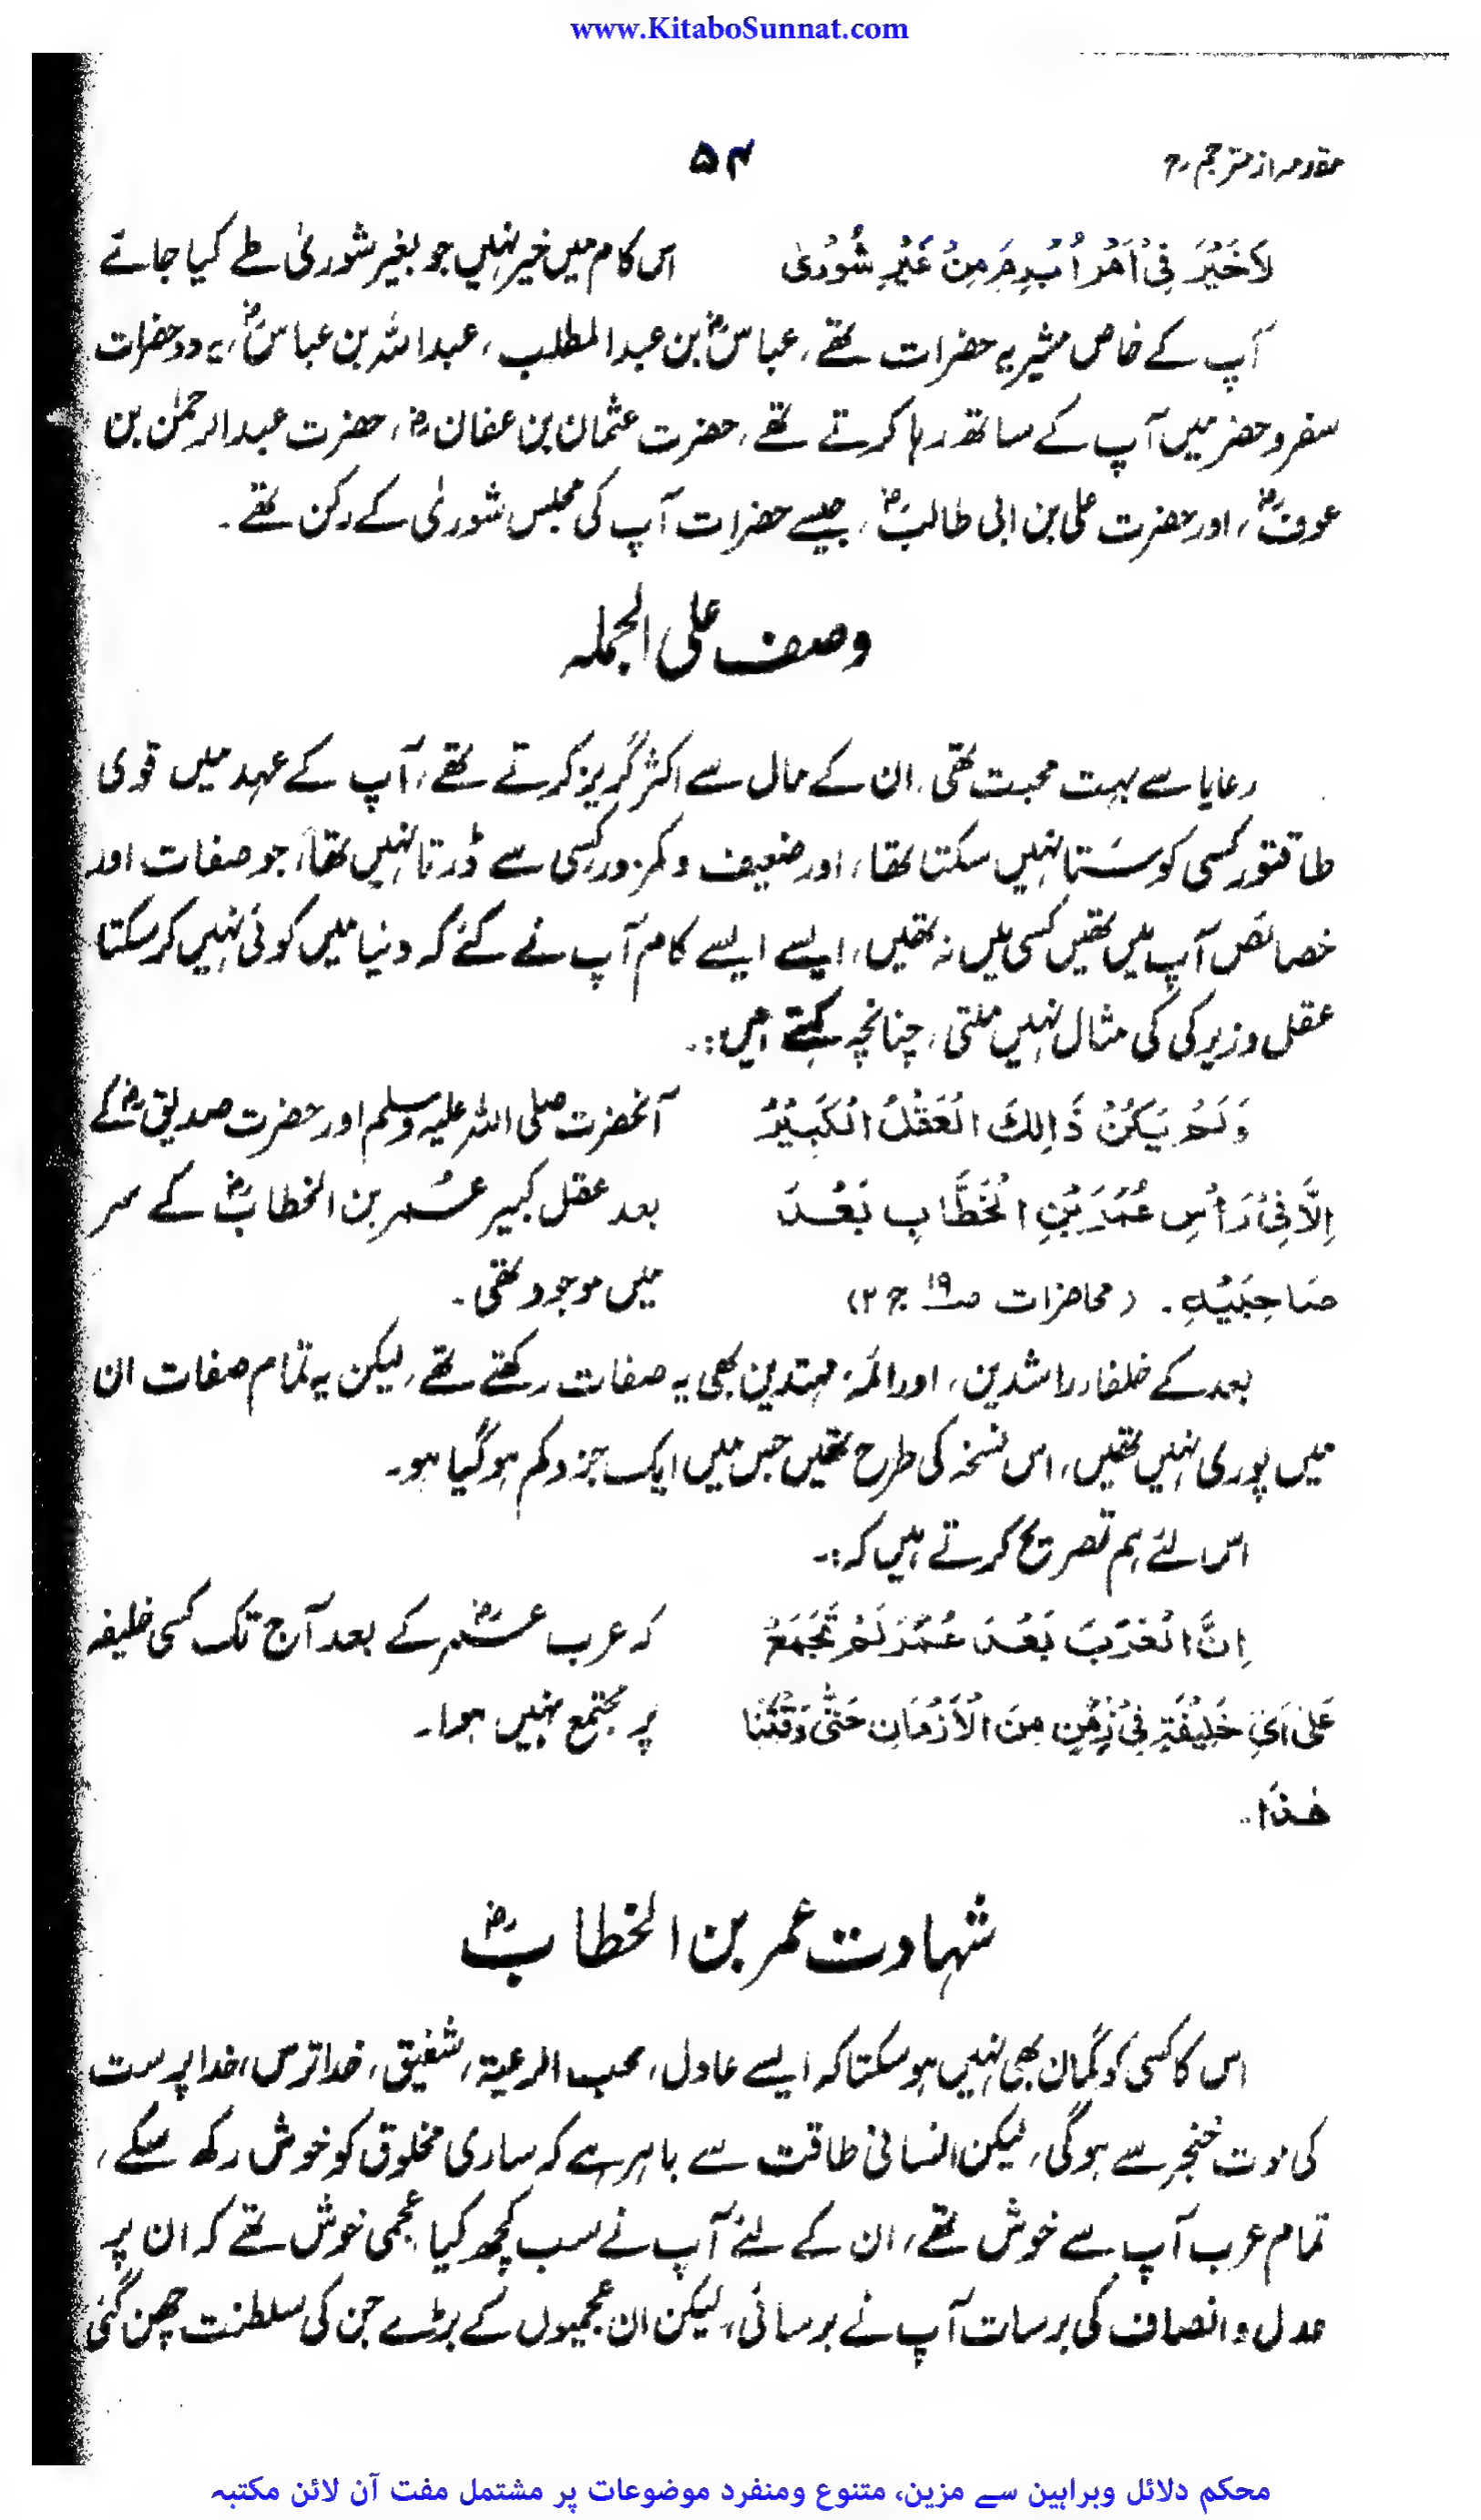 www.KitaboSunnat.com
مقدمہ از مترجم رح ۵۴
لَاخَيْرَ فِىْ اَمْرٍ اُبْرِمَ مِنْ غَيْرِ شُوْرىٰ اس کام میں خیر نہیں جو بغیر شوریٰ طے کیا جاتے
آپ کے خاص مشیر یہ حضرات تھے، عباسؓ بن عبدالمطلب، عبداللہ بن عباسؓ، یہ دو حضرات
سفر و حضر میں آپ کے ساتھ رہا کرتے تھے، حضرت عثمان بن عفانؓ، حضرت عبدالرحمٰن بن
عوفؓ، اور حضرت علی بن ابی طالبؓ، جیسے حضرات آپ کی مجلس شوریٰ کے رکن تھے۔
وصف علی الجملہ
رعایا سے بہت محبت تھی، ان کے مال سے اکثر گریز کرتے تھے، آپ کے عہد میں قوی
طاقتور کسی کو ستا نہیں سکتا تھا، اور ضعیف و کمزور کسی سے ڈرتا نہیں تھا، جو صفات اور
خصائص آپ میں تھیں کسی میں نہ تھیں، ایسے ایسے کام آپ نے کئے کہ دنیا میں کوئی نہیں کرسکتا
عقل و زیرکی کی مثال نہیں ملتی، چنانچہ کہتے ہیں:۔
وَلَمْ يَكُنْ ذَالِكَ الْعَقْلُ الْكَبِيْرُ آنحضرت صلی اللہ علیہ وسلم اور حضرت صدیقؓ کے
اِلَّا فِىْ رَأْسِ عُمَرَ بْنِ الْخَطَّابِ بَعْدَ بعد عقل کبیر عمر بن الخطابؓ کے سر
صَاحِبَيْهِ۔ (محاضرات صـ۱۹ ج ۲) میں موجود تھی۔
بعد کے خلفاء راشدین، اور ائمہ مہتدین بھی یہ صفات رکھتے تھے، لیکن یہ تمام صفات ان
میں پوری نہیں تھیں، اس نسخہ کی طرح تھیں جس میں ایک جزو کم ہوگیا ہو۔
اس لئے ہم تصریح کرتے ہیں کہ:۔
اِنَّ الْعَرَبَ بَعْدَ عُمَرَ لَمْ تَجْمَعْ کہ عرب عمرؓ کے بعد آج تک کسی خلیفہ
عَلٰى اَىِّ خَلِيْفَةٍ فِىْ زَمَنٍ مِنَ الْاَزْمَانِ حَتّٰى وَقْتِنَا پر مجتمع نہیں ہوا۔
هٰذَا۔
شہادت عمر بن الخطابؓ
اس کا کسی کو گمان بھی نہیں ہوسکتا کہ ایسے عادل، محب الرعیۃ، شفیق، خدا ترس، خدا پرست
کی موت خنجر سے ہوگی، لیکن انسانی طاقت سے باہر ہے کہ ساری مخلوق کو خوش رکھ سکے،
تمام عرب آپ سے خوش تھے، ان کے لئے آپ نے سب کچھ کیا، عجمی خوش تھے کہ ان پر
عدل و انصاف کی برسات آپ نے برسائی، لیکن ان عجمیوں کے بڑے جن کی سلطنت چھن گئی
محکم دلائل وبراہین سے مزین، متنوع ومنفرد موضوعات پر مشتمل مفت آن لائن مکتبہ